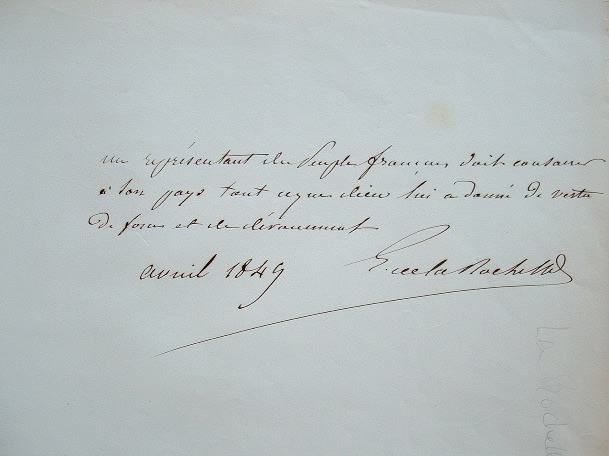 un représentant du Peuple français doit consacrer
à son pays tout ce que dieu lui a donné de vertu
de force et de dévouement
avril 1849 E. de la Rochette
La Rochett